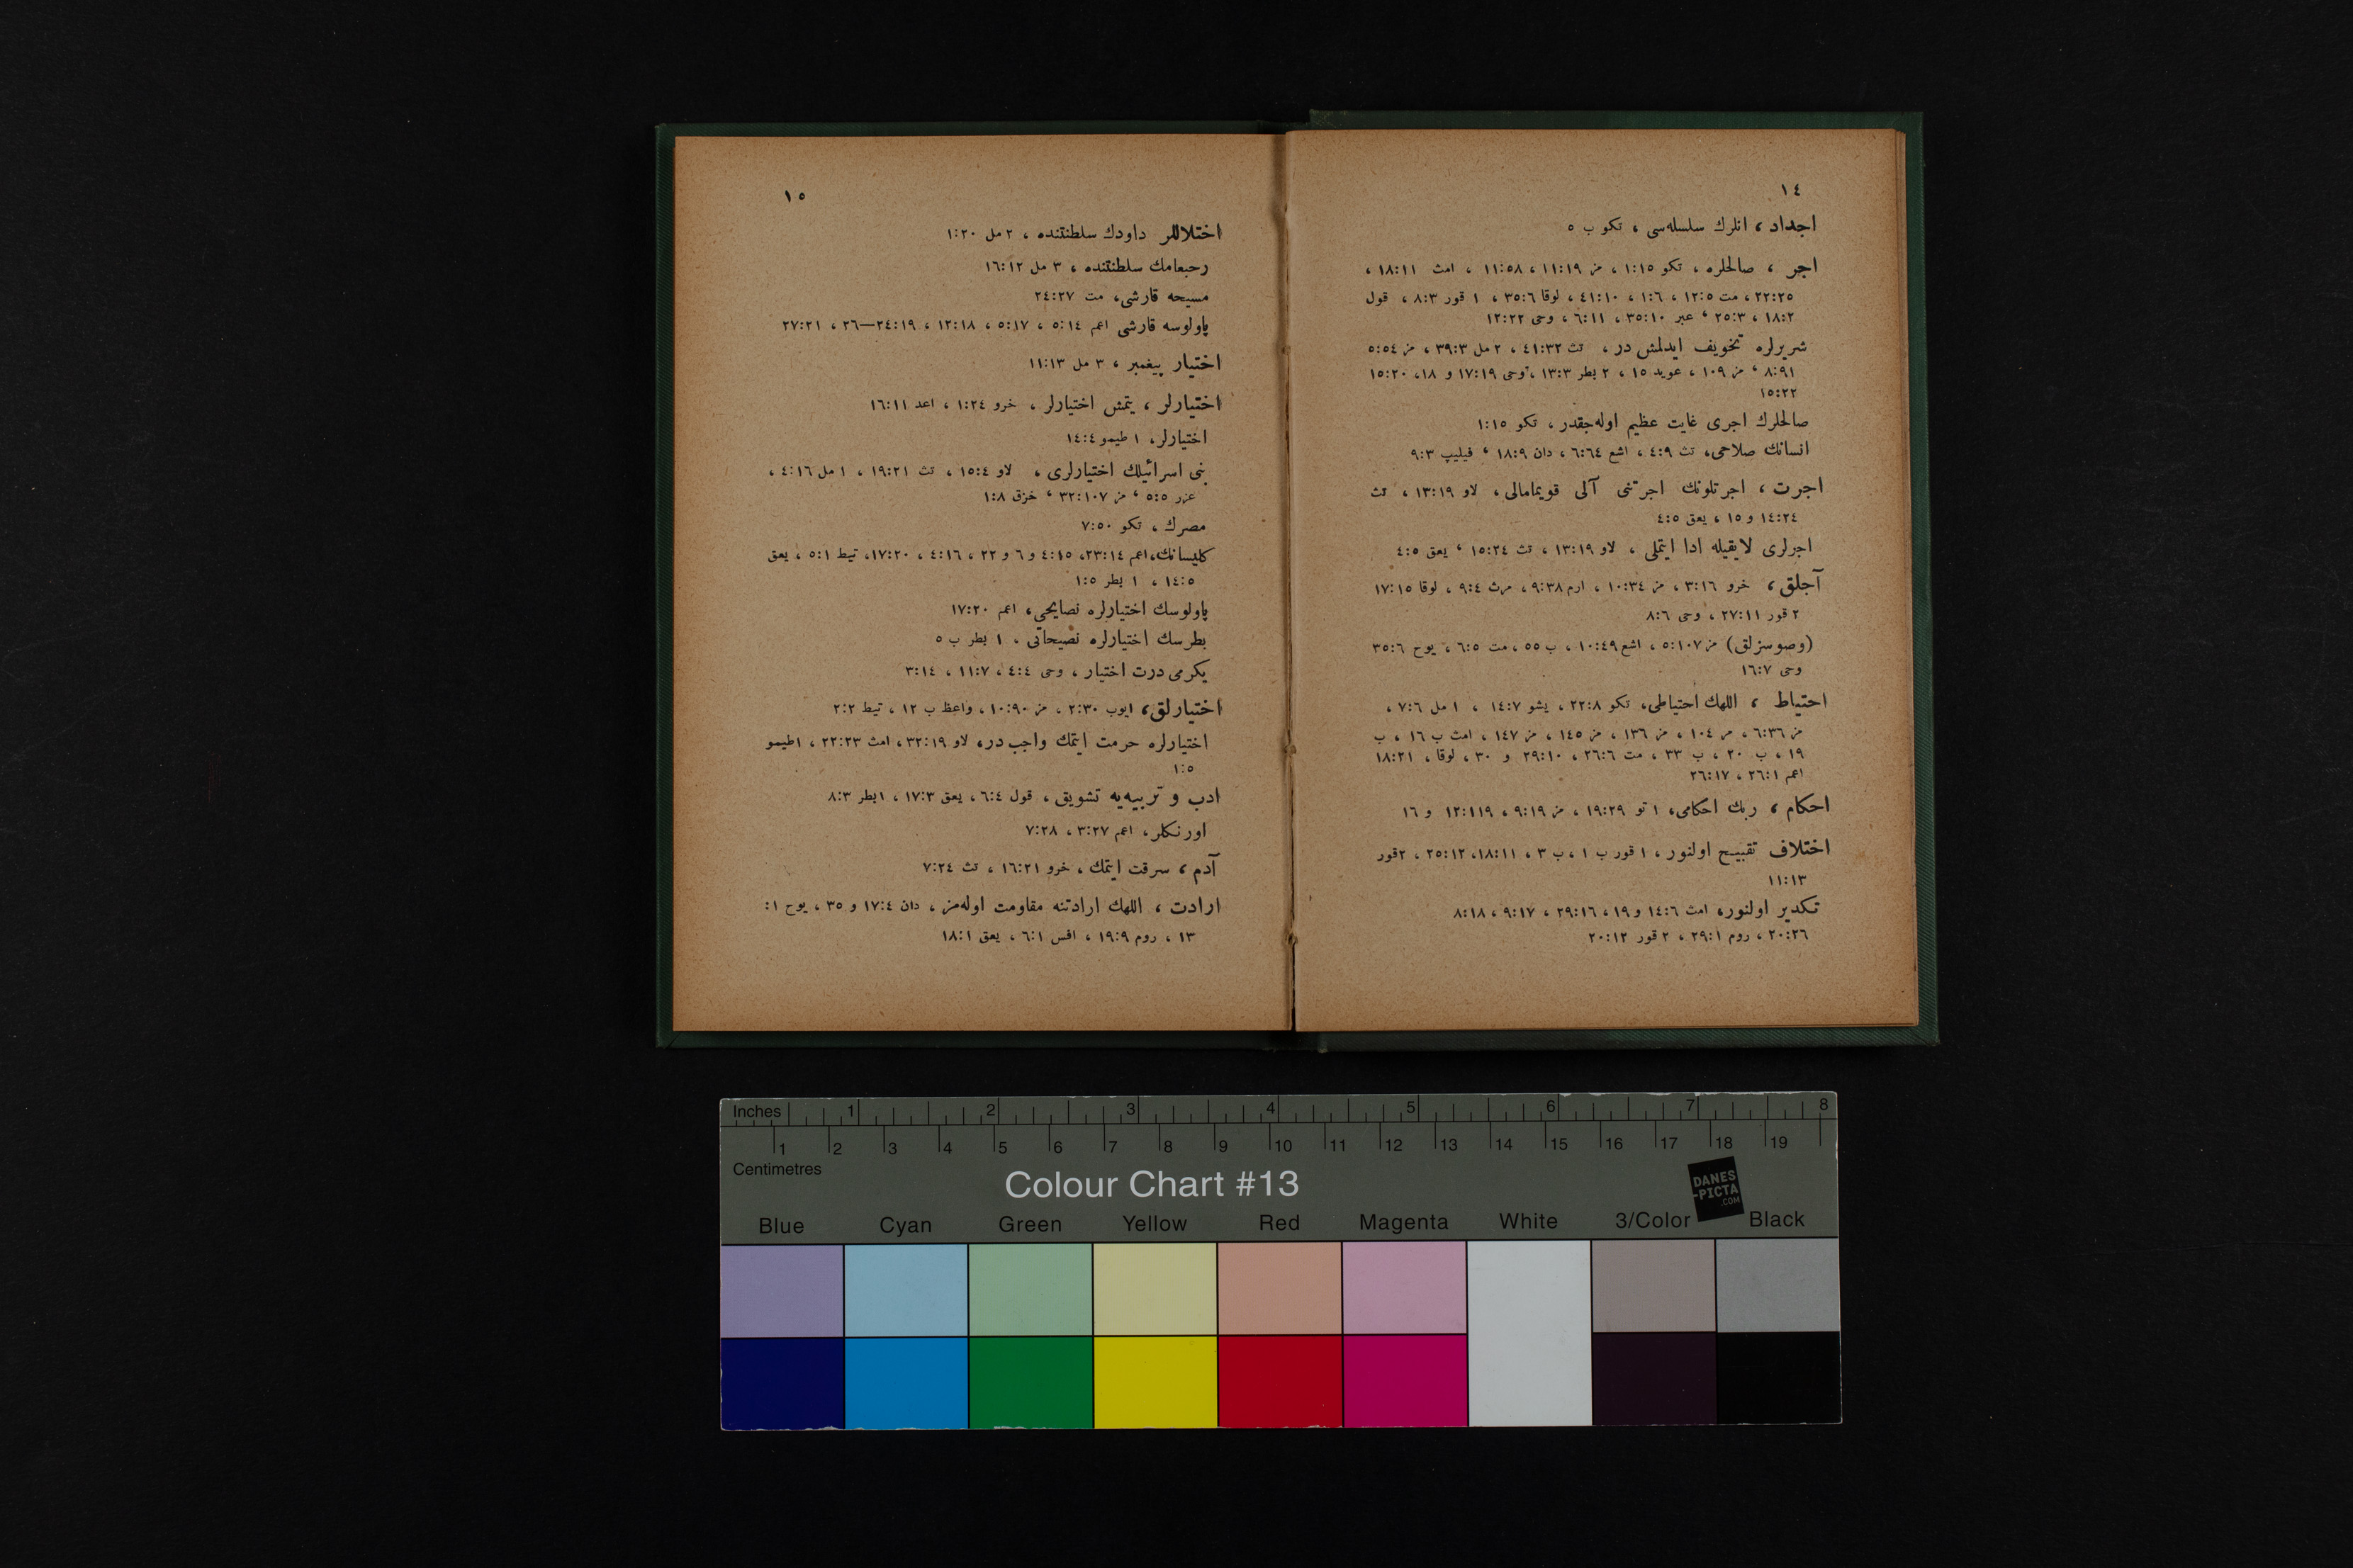 ١٤
اجداد ، انلرك سلسله‌سی ، تكو ب ٥
اجر ، صالحلره ، تكو ١:١٥ ، مز ١١:١٩ ، ١١:٥٨ ، امث ١٨:١١ ،
٢٢:٢٥ ، مت ١٢:٥ ، ١:٦ ، ٤١:١٠ ، لوقا ٣٥:٦ ، ١ قور ٨:٣ ، قول
١٨:٢ ، ٢٥:٣ ، عبر ٣٥:١٠ ، ٦:١١ ، وحی ١٢:٢٢
شریرلره تخویف ایدلمش در ، تث ٤١:٣٢ ، ٢ مل ٣٩:٣ ، مز ٥:٥٤
٨:٩١ ، مز ١٠٩ ، عوید ١٥ ، ٢ بطر ١٣:٣ ، وحی ١٧:١٩ و ١٨، ١٥:٢٠
١٥:٢٢
صالحلرك اجری غایت عظیم اوله‌جقدر ، تكو ١:١٥
انسانك صلاحی، تث ٤:٩ ، اشع ٦:٦٤ ، دان ١٨:٩ ، فیلیپ ٩:٣
اجرت ، اجرتلونك اجرتنی آلی قویمامالی ، لاو ١٣:١٩ ، تث
١٤:٢٤ و ١٥ ، یعق ٤:٥
اجرلری لایقیله ادا ایتملی ، لاو ١٣:١٩ ، تث ١٥:٢٤ ، یعق ٤:٥
آجلق ، خرو ٣:١٦ ، مز ١٠:٣٤ ، ارم ٩:٣٨ ، مرث ٩:٤ ، لوقا ١٧:١٥
٢ قور ٢٧:١١ ، وحی ٨:٦
(وصوسزلق) مز ٥:١٠٧ ، اشع ١٠:٤٩ ، ب ٥٥ ، مت ٦:٥ ، یوح ٣٥:٦
وحی ١٦:٧
احتیاط ، اللهك احتیاطی، تكو ٢٢:٨ ، یشو ١٤:٧ ، ١ مل ٧:٦ ،
مز ٦:٣٦ ، مز ١٠٤ ، مز ١٣٦ ، مز ١٤٥ ، مز ١٤٧ ، امث ب ١٦ ، ب
١٩ ، ب ٢٠ ، ب ٣٣ ، مت ٢٦:٦ ، ٢٩:١٠ و ٣٠ ، لوقا ، ١٨:٢١
اعم ٢٦:١ ، ٢٦:١٧
احكام ، ربك احكامی، ١ تو ١٩:٢٩ ، مز ٩:١٩ ، ١٢:١١٩ و ١٦
اختلاف تقبیح اولنور ، ١ قور ب ١ ، ب ٣ ، ١٨:١١، ٢٥:١٢ ، ٢قور
١١:١٣
تكدیر اولنور، امث ١٤:٦ و ١٩ ، ٢٩:١٦ ، ٩:١٧ ، ٨:١٨
٢٠:٢٦ ، روم ٢٩:١ ، ٢ قور ٢٠:١٢
١٥
اختلاللر داودك سلطنتنده ، ٢ مل ١:٢٠
رحبعامك سلطنتنده ، ٣ مل ١٦:١٢
مسیحه قارشی، مت ٢٤:٢٧
پاولوسه قارشی اعم ٥:١٤ ، ٥:١٧ ، ١٢:١٨ ، ٢٤:١٩—٢٦ ، ٢٧:٢١
اختیار پیغمبر ، ٣ مل ١١:١٣
اختیارلر ، یتمش اختیارلر ، خرو ١:٢٤ ، اعد ١٦:١١
اختیارلر، ١ طیمو ١٤:٤
بنی اسرائیلك اختیارلری ، لاو ١٥:٤ ، تث ١٩:٢١ ، ١ مل ٤:١٦ ،
عزر ٥:٥ ، مز ٣٢:١٠٧ ، خزق ١:٨
مصرك ، تكو ٧:٥٠
كلیسانك، اعم ٢٣:١٤، ٤:١٥ و ٦ و ٢٢ ، ٤:١٦ ، ١٧:٢٠، تیط ٥:١ ، یعق
١٤:٥ ، ١ بطر ١:٥
پاولوسك اختیارلره نصایحی، اعم ١٧:٢٠
بطرسك اختیارلره نصیحاتی ، ١ بطر ب ٥
یكرمی درت اختیار ، وحی ٤:٤ ، ١١:٧ ، ٣:١٤
اختیارلق، ایوب ٢:٣٠ ، مز ١٠:٩٠ ، واعظ ب ١٢ ، تیط ٢:٢
اختیارلره حرمت ایتمك واجب در، لاو ٣٢:١٩ ، امث ٢٢:٢٣ ، ١طیمو
١:٥
ادب و تربیه‌یه تشویق ، قول ٦:٤ ، یعق ١٧:٣ ، ١بطر ٨:٣
اورنكلر، اعم ٣:٢٧ ، ٧:٢٨
آدم ، سرقت ایتمك ، خرو ١٦:٢١ ، تث ٧:٢٤
ارادت ، اللهك ارادتنه مقاومت اوله‌مز ، دان ١٧:٤ و ٣٥ ، یوح ١:
١٣ ، روم ١٩:٩ ، افس ٦:١ ، یعق ١٨:١
Inches 1 2 3 4 5 6 7 8
1 2 3 4 5 6 7 8 9 10 11 12 13 14 15 16 17 18 19
Centimetres
Colour Chart #13
DANES
-PICTA
.COM
Blue Cyan Green Yellow Red Magenta White 3/Color Black